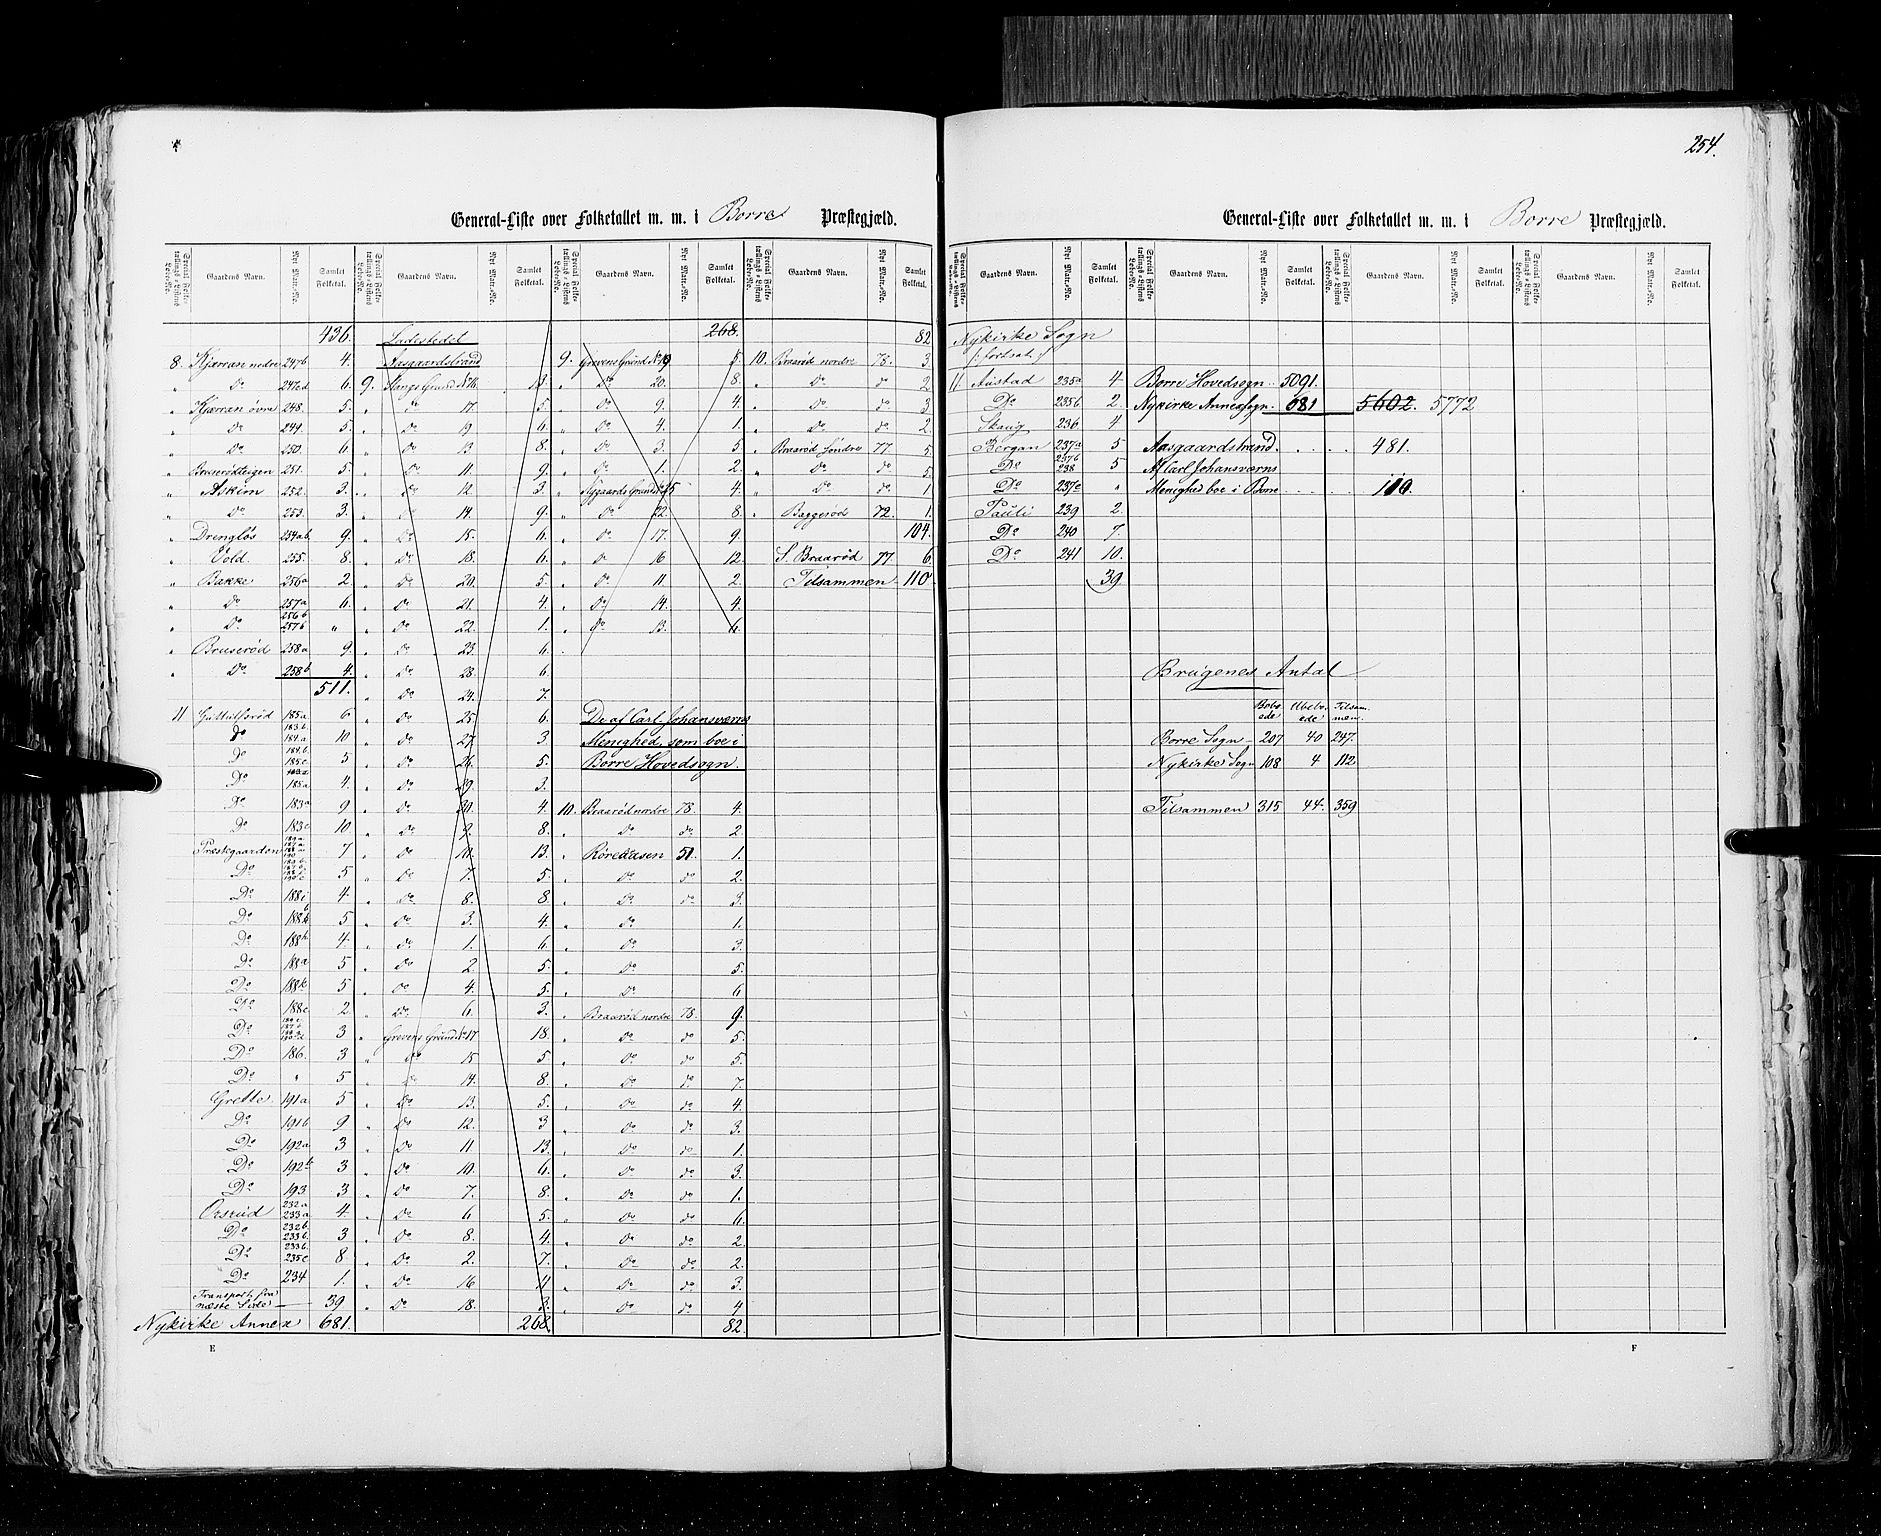 254.
General-Liste over Folketallet m. m. i Borre Præstegjæld.
Special Folketællings-Listens Løbe-No. Gaardens Navn. Nyt Matr.-No. Samlet Folketal. Special Folketællings-Listens Løbe-No. Gaardens Navn. Nyt Matr.-No. Samlet Folketal. Special Folketællings-Listens Løbe-No. Gaardens Navn. Nyt Matr.-No. Samlet Folketal. Special Folketællings-Listens Løbe-No. Gaardens Navn. Nyt Matr.-No. Samlet Folketal.
436. Ladestedet 268. 82
8. Kjærran nedre 247b 4. Aasgaardstrand 9. Grevens Grund No 19 10. Braarød nordre 78. 3
" Do 247cd 6. 9. Do 20. 8. " Do do 2.
" Kjærran øvre 248. 5. " do 17. 5. " Do 9. 4. " Do do 3
" Do 249. 5. " Do 19 6. " Do 4. 1. " Do do 2.
" Do 250. 6 " Do 13 8. " Do 3. 5 " Braarød Søndre 77. 5
" Bruserødteigen 251. 5 " Do 11. 9. " Do 1. 2. " Do do 5.
" Askim 252. 3. " Do 12. 3. " 4. " Do do 1
" Do 253. 3. " Do 14. 9. " Do 22. 8 " Baggerød 72. 1.
" Drengløs 254ab. 9. " Do 15. 6. " Do 17. 9. 104.
" Vold 255. 8. " Do 18. 6. " Do 16 12. S. Braarød 77 6.
" Bakke 256a 2. " Do 20. 5. " Do 11 2. Tilsammen 110.
" Do 257a 6. " Do 21. 4. " Do 14. 4.
" Do 256b 257b " " Do 22. 1. " Do 13. 6.
" Bruserød 258a 9. " Do 23. 6.
" Do 258b 4. " Do 28. 6.
511. " Do 24. 7.
11 185a 6 " Do 25. 6. De af Carl Johansværns
Do 183b. 184a 10 " Do 27. 3 Menighed, som boe i
Do 184b. 185c 5 " Do 26. 5. Borre Hovedsogn.
Do 185a 4. " Do 29. 3.
Do 183a 9 " Do 30. 4. 10. Braarød nordre 78. 4.
Do 183c 10 " Do 9. 8. " Do do 2.
Præstegaarden 7 " Do 10. 13. " 51. 1.
Do 5 " Do 7. 5. " Do do 2.
Do 188i 4 " Do 8. 8. " Do do 3.
Do 5 " Do 3. 4. " Do 1.
Do 188h 4. " Do 1. 6. " Do 3.
Do 188a 5 " Do 2. 5. " Do 5.
Do 188k 5 " Do 4. 5. " Do 6
Do 188c 2. " Do 6. 3. " Braarød nordre 78. 9.
Do 3 " Grevens Grund No 17 18. " Do do 5.
Do 186. 3 " Do 15 5. " Do do 5.
Do " 5 " Do 14. 8. " Do do 7.
Grette 191a 5 " Do 13. 5. " Do do 4.
Do 191b 9 " Do 12. 3 " Do do 3.
Do 192a 3 " Do 11 13. " Do do 1.
Do 192b 3 " Do 10. 6. " Do do 3.
Do 193 3 " Do 7. 8. " Do do 1.
Orsrud 232a 233a 4. " Do 6 5. " Do do 6.
Do 232b. 233b. 3 " Do 8. 4. " Do do 2.
Do 235c 8. " Do 2. 7. " Do do 2.
Do 234 1. " Do 16 11 " Do do 3.
Transport fra
næste Side 39 " Do 18. 3. " Do do 4
Nykirke Annex 681. 268. 82.
E
General-Liste over Folketallet m. m. i Borre Præstegjæld.
Special Folketællings-Listens Løbe-No. Gaardens Navn. Nyt Matr.-No. Samlet Folketal. Special Folketællings-Listens Løbe-No. Gaardens Navn. Nyt Matr.-No. Samlet Folketal. Special Folketællings-Listens Løbe-No. Gaardens Navn. Nyt Matr.-No. Samlet Folketal. Special Folketællings-Listens Løbe-No. Gaardens Navn. Nyt Matr.-No. Samlet Folketal.
Nykirke Sogn
/: fortsat :/
11 Austad 235a 4 Borre Hovedsogn 5091.
Do 235b 2. Nykirke Annexsogn 681 5602. 5772
Skaug 236 4
Bergan 237a 5 Aasgaardstrand 481.
Do 237b 238 5 Af Carl Johansværns
Do 237c " Menighed boe i Borre 110.
Pauli 239 2.
Do 240 7.
Do 241 10.
39
Brugenes Antal
Beboede Ubeboede Tilsammen.
Borre Sogn 207 40 247.
Nykirke Sogn 108 4 112
Tilsammen 315 44. 359
F